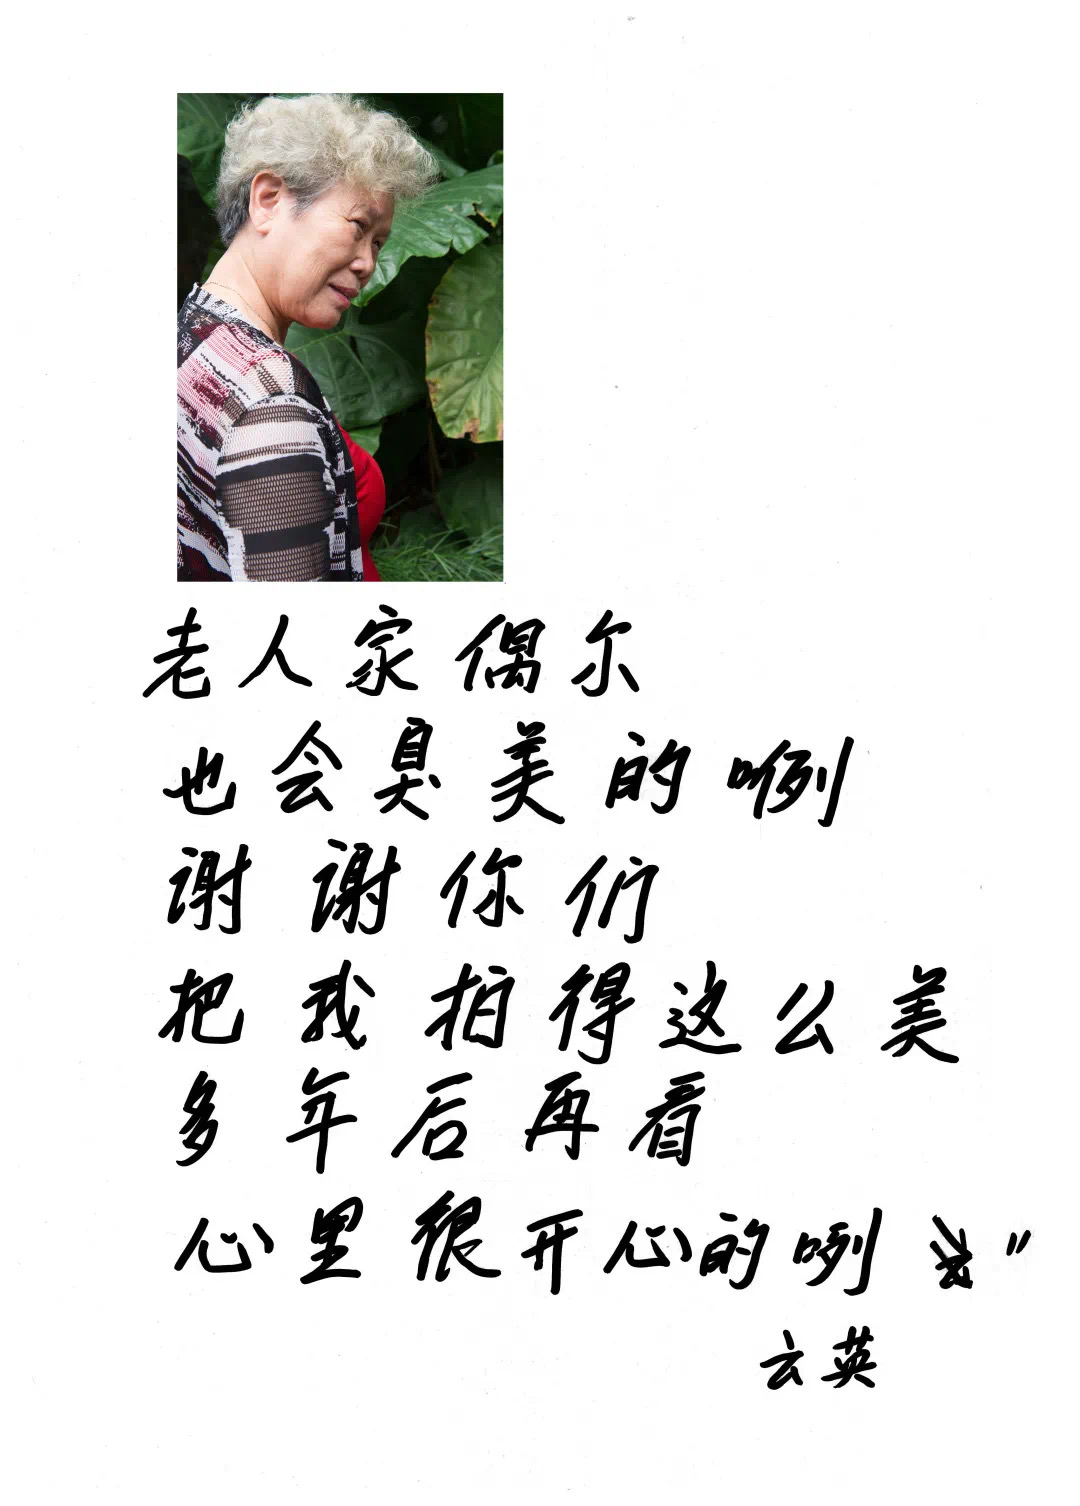 老人家偶尔
也会臭美的咧
谢谢你们
把我拍得这么美
多年后再看
心里很开心的咧"
云英